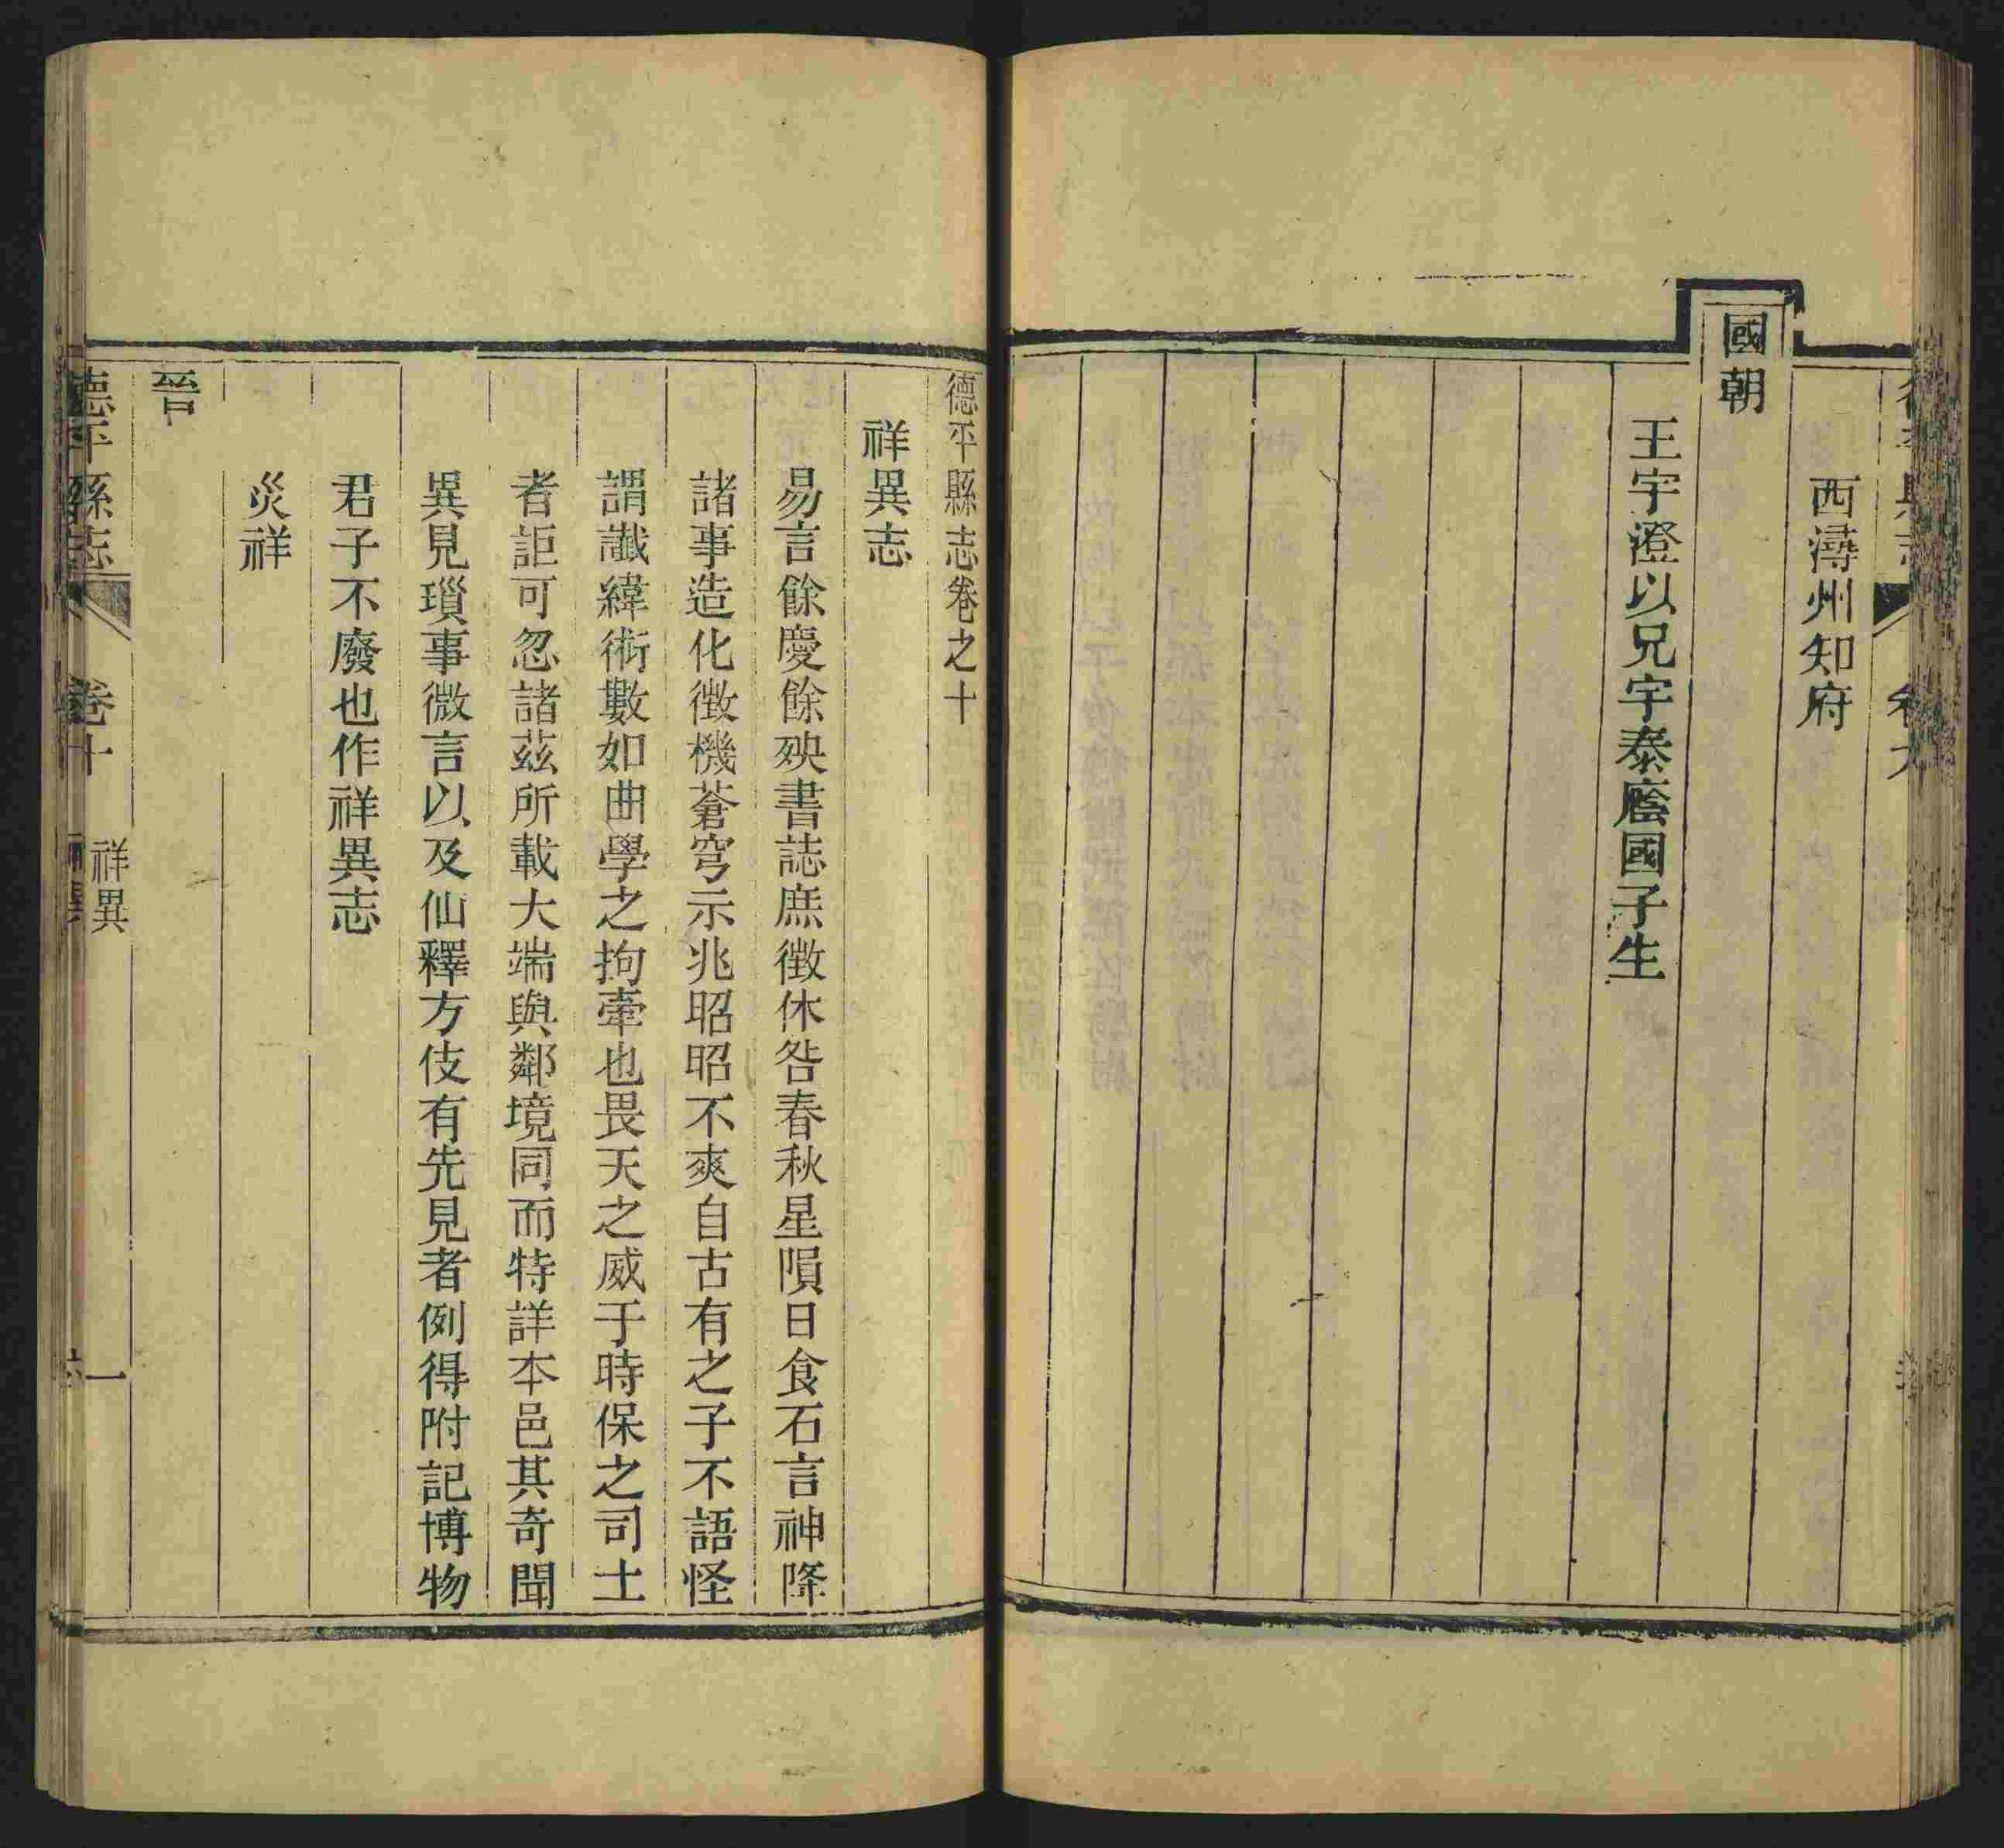 西潯州知府
國朝
王宇澄以兄宇泰廕國子生
德平縣志卷之十
祥異志
易言餘慶餘殃書誌庶徵休咎春秋星隕日食石言神降
諸事造化徵機蒼穹示兆昭昭不爽自古有之子不語怪
謂讖緯術數如曲學之拘牽也畏天之威于時保之司土
者詎可忽諸茲所載大端與鄰境同而特詳本邑其奇聞
異見瑣事微言以及仙釋方伎有先見者例得附記博物
君子不廢也作祥異志
災祥
晉
德平縣志
卷十
祥異
一